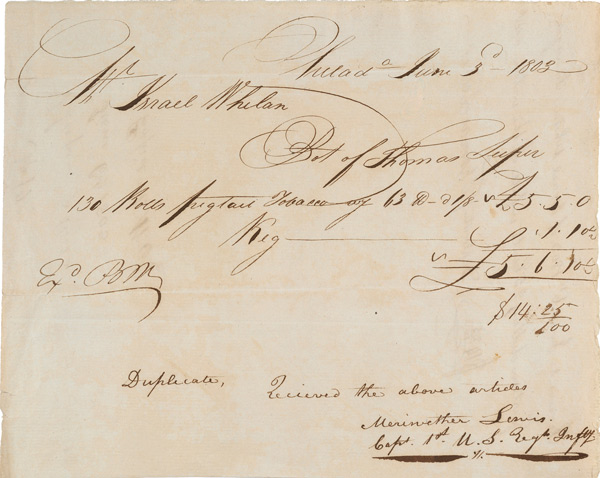 Philada June 3d 1803
Mr Israel Whelan
Bot of Thomas Leiper
130 Rolls pigtail Tobacco wg 63 lb @ 1/8 £5.5.0
Keg 1.10½
£5.6.10½
Exd. BM
$14.25/100
Duplicate, Recieved the above articles
Meriwether Lewis.
Capt. 1st. U. S. Regt. Infty.